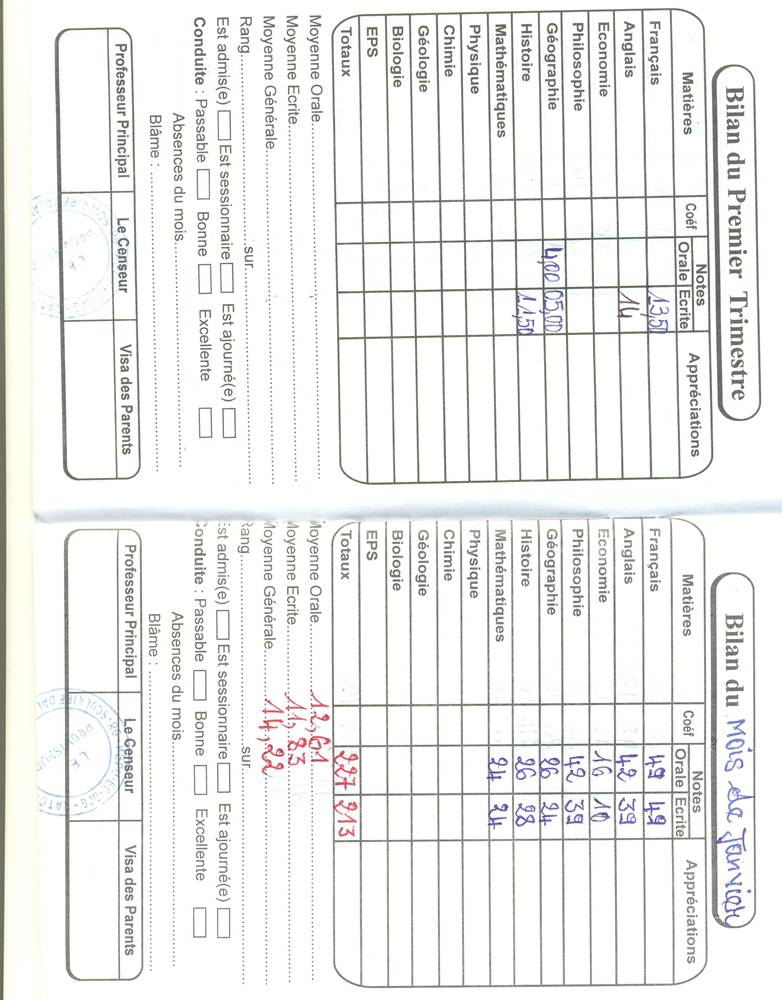 Bilan du Premier Trimestre
Matières Coéf Notes Appréciations
Orale Ecrite
Français 13,50
Anglais 14
Economie
Philosophie
Géographie 4,00 05,00
Histoire 11,50
Mathématiques
Physique
Chimie
Géologie
Biologie
EPS
Totaux
Moyenne Orale
Moyenne Ecrite
Moyenne Générale
Rang sur
Est admis(e) Est sessionnaire Est ajourné(e)
Conduite : Passable Bonne Excellente
Absences du mois
Blâme :
Professeur Principal Le Censeur Visa des Parents
Bilan du Mois de Janvier
Matières Coéf Notes Appréciations
Orale Ecrite
Français 49 49
Anglais 42 39
Economie 16 10
Philosophie 42 39
Géographie 26 24
Histoire 26 28
Mathématiques 24 24
Physique
Chimie
Géologie
Biologie
EPS
Totaux 227 213
Moyenne Orale 12,61
Moyenne Ecrite 11,83
Moyenne Générale 14,22
Rang sur
Est admis(e) Est sessionnaire Est ajourné(e)
Conduite : Passable Bonne Excellente
Absences du mois
Blâme :
Professeur Principal Le Censeur Visa des Parents